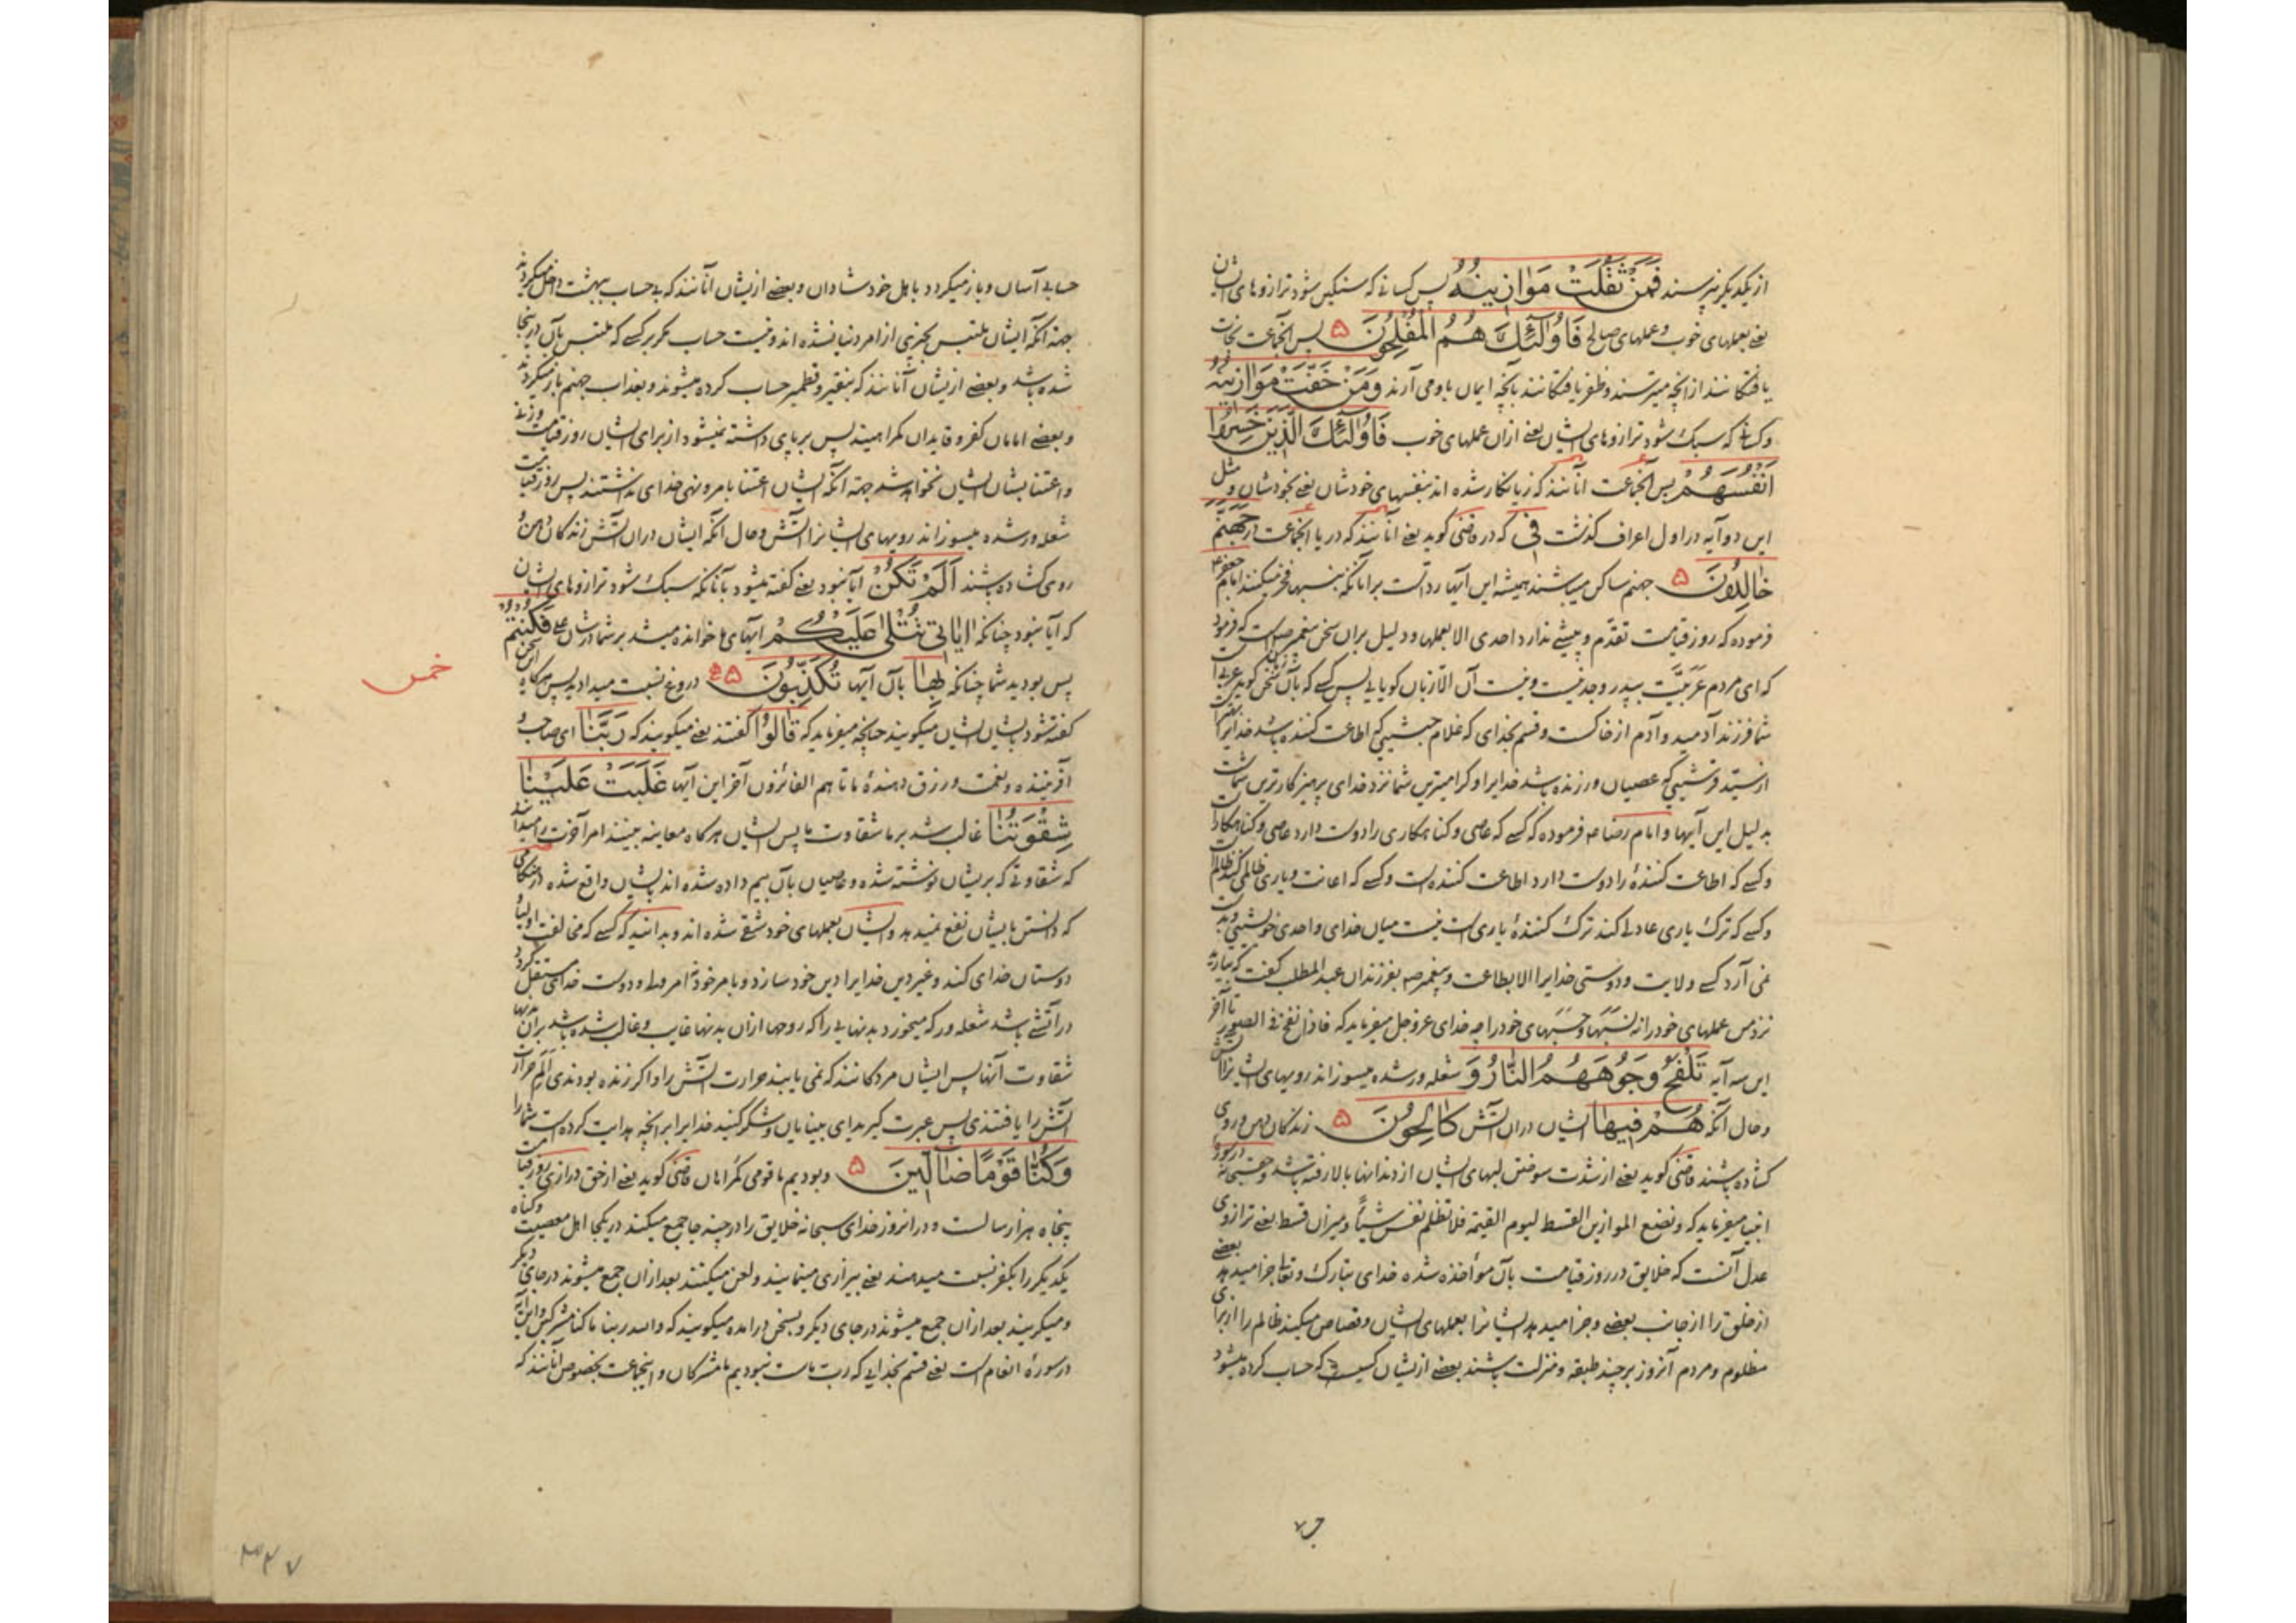 از یکدیگر نپرسند فَمَنْ ثَقُلَتْ مَوَازِینُهُ پس کسانی که سنکین شود ترازوهای ایشان
یعنی بعملهای خوب و عملهای صالح فَاُولٰئِكَ هُمُ الْمُفْلِحُونَ ۵ پس آنجماعت نجات
یافتکانند از آنچه میترسند و ظفر یافتکانند بآنچه ایمان باو می آرند وَمَنْ خَفَّتْ مَوَازِینُهُ
و کسانی که سبک شود ترازوهای ایشان یعنی ازان عملهای خوب فَاُولٰئِكَ الَّذِینَ خَسِرُوا
اَنْفُسَهُمْ پس آنجماعت آنانند که زیانکار شده اند بنفسهای خودشان یعنی بخودشان و مثل
این دو آیه در اول اعراف کذشت فِی که در قمی کوید یعنی آنانند که در یا آنجماعت در جَهَنَّمَ
خَالِدُونَ ۵ جهنم ساکن میباشند همیشه این آیها رد است بر آنانکه بنسبها فخر میکنند امام جعفر ع
فرموده که روز قیامت تقدّم و پیشی ندارد احدی الا بعملها و دلیل بران سخن پیغمبر ص است که فرمود
که ای مردم عَرَبِیَّت بپدر وجد نیست و نیست آن الا زبان کویایی پس کسی که بآن سخن کوید عربی
شما فرزند آدمید و آدم از خاکست و قسم بخدای که غلام حبشی که اطاعت کننده باشد خدایرا
از سید قرشی که عصیان ورزنده باشد خدایرا و کرامیترین شما نزد خدای پرهیزکارترین شماست
بدلیل این آیها و امام رضا ع فرموده که کسی که عاصی و کناهکاری را دوست دارد عاصی و کناهکار
و کسی که اطاعت کنندهٔ را دوست دارد اطاعت کننده است و کسی که اعانت و یاری ظالمی کند ظالم
و کسی که ترک یاری عادلی کند ترک کنندهٔ یاری است نیست میان خدای و احدی خویشی
نمی آرد کسی ولایت و دوستی خدایرا الا بطاعت و پیغمبر ص بفرزندان عبد المطلب کفت که بیارید
نزد من عملهای خود را نه نسبها و حسبهای خود را چه خدای عزوجل میفرماید که فاذا نفخ فی الصور تا آخر
این سه آیه تَلْفَحُ وُجُوهَهُمُ النَّارُ وَ شعله ور شده میسوزاند رویهای ایشانرا آتش
و حال آنکه هُمْ فِیهَا ایشان دران آتش کَالِحُونَ ۵ زندکان دهن و روی
کشاده باشند قمی کوید یعنی از شدت سوختن لبهای ایشان از دندانها بالا رفته باشد
انبیا میفرماید که و نضع الموازین القسط لیوم القیمة فلا تظلم نفس شیئاً و میزان قسط یعنی ترازوی
عدل آنست که خلایق در روز قیامت بآن مواخذه شده خدای تبارک و تعالی جزا میدهد بعضی
از خلق را از جانب بعضی و جزا میدهد ایشانرا بعملهای ایشان و قصاص میکند ظالم را از برای
مظلوم و مردم آنروز بر چند طبقه و منزلت باشند بعضی ازیشان کسیست که حساب کرده میشود
حسابی آسان و باز میکردد باهل خود شادان و بعضی ازیشان آنانند که بیحساب ببهشت داخل میکردند
جهة آنکه ایشان ملتبس بچیزی از امر دنیا نشده اند و نیست حساب مکر بر کسی که ملتبس بآن در اینجا
شده باشد و بعضی ازیشان آنانند که بنقیر و قطمیر حساب کرده میشوند و بعذاب جهنم باز میکردند
و بعضی امامان کفر و قایدان کمراهیند پس برپای داشته نمیشود از برای ایشان روز قیامت وزنی
و اعتنا بشان ایشان نخواهد شد جهة آنکه ایشان اعتنا بامر و نهی خدای نداشتند پس روز قیامت
شعله ور شده میسوزاند رویهای ایشانرا آتش و حال آنکه ایشان دران آتش زندکان دهن و
روی کشاده باشند اَلَمْ تَکُنْ آیا نبود یعنی کفته میشود بآنانکه سبک شود ترازوهای ایشان
که آیا نبود چنانکه اٰیَاتِی تُتْلٰی عَلَیْکُمْ آیهای ما خوانده میشد بر شما فَکُنْتُمْ
پس بودید شما چنانکه بِهَا بآن آیها تُکَذِّبُونَ ۵ دروغ نسبت میدادید پس هرکاه این سخن
خمس
کفته شود بایشان ایشان میکویند چنانچه میفرماید که قَالُوا کفتند یعنی میکویند که رَبَّنَا ای صاحب و
آفریننده و نعمت و رزق دهندهٔ ما تا هم الفائزون آخر این آیها غَلَبَتْ عَلَیْنَا
شِقْوَتُنَا غالب شد بر ما شقاوت ما پس ایشان هرکاه معاینه بینند امر آخرت را میدانند
که شقاوتی که بریشان نوشته شده و عاصیان بآن بیم داده شده اند بایشان واقع شده
که دانستن بایشان نفع نمیدهد و ایشان بعملهای خود شقی شده اند و بدانید که کسی که مخالفت اولیا و
دوستان خدای کند و غیر دین خدایرا دین خود سازد و بامر خود نه امر ولی و دوست خدای مستقل کردد
در آتشی باشد شعله ور که میخورد بدنهایی را که روحها ازان بدنها غایب و غالب شده باشد بران بدنها
شقاوت آنها پس ایشان مردکانند که نمی یابند حرارت آتش را و اکر زنده بودندی الم حرارت
آتش را یافتندی پس عبرت کیرید ای بینایان و شکر کنید خدایرا بر آنچه هدایت کرده است شما را
وَکُنَّا قَوْمًا ضَالِّینَ ۵ و بودیم ما قومی کمراهان قمی کوید درازی روز قیامت
پنجاه هزار سالست و در آنروز خدای سبحانه خلایق را در چند جا جمع میکند در یکجا اهل معصیت و کناه
یکدیکر را بکفر نسبت میدهند یعنی بیزاری مینمایند و لعن میکنند بعد ازان جمع میشوند در جای دیکر
و میکریند بعد ازان جمع میشوند در جای دیکر و بسخن درامده میکویند که والله ربنا ما کنا مشرکین و این آیه
در سورهٔ انعام است یعنی قسم بخدایی که رب ماست نبودیم ما مشرکان و اینجماعت بخصوص آنانند که
۳۴۷